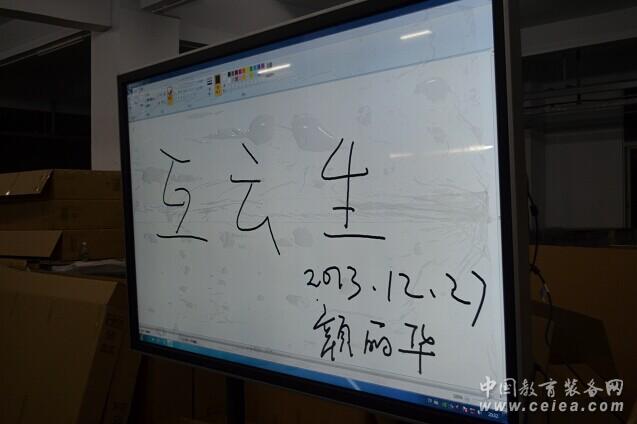 互云生
2013.12.27
颜丽华
中国教育装备网
www.ceiea.com